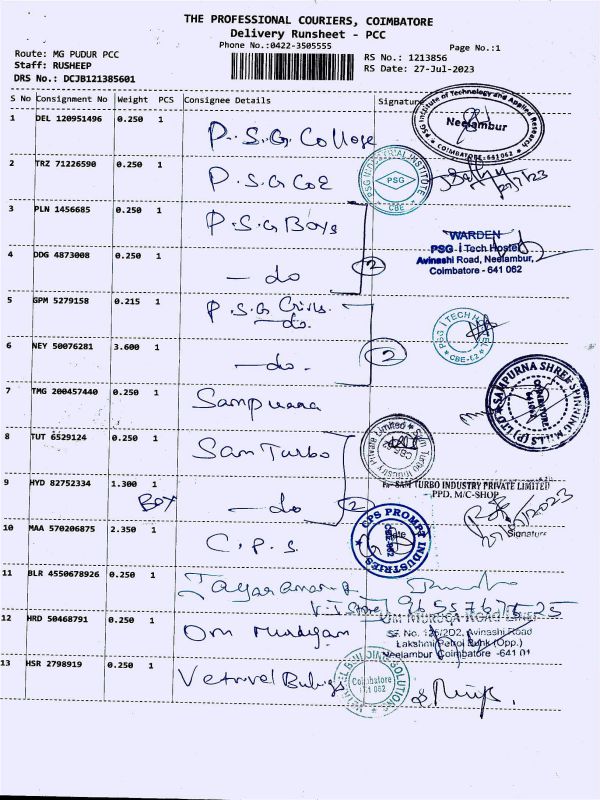 THE PROFESSIONAL COURIERS, COIMBATORE
Delivery Runsheet - PCC
Phone No.:0422-3505555
Page No.:1
Route: MG PUDUR PCC
Staff: RUSHEEP
DRS No.: DCJB121385601
RS No.: 1213856
RS Date: 27-Jul-2023
S No Consignment No Weight PCS Consignee Details Signature
1 DEL 120951496 0.250 1 P.S.G. College
PSG Institute of Technology and Applied Research
Neelambur
COIMBATORE-641 062
2 TRZ 71226590 0.250 1 P.S.G COE
PSG INDUSTRIAL INSTITUTE
PSG
CBE
27/7/23
3 PLN 1456685 0.250 1 P.S.G Boys
WARDEN
PSG i Tech Hostel
Avinashi Road, Neelambur,
Coimbatore - 641 062
4 DDG 4873008 0.250 1 - do 2
5 GPM 5279158 0.215 1 P.S.G Girls
- do.
PSG I TECH HOSTEL
CBE-62
6 NEY 50076281 3.600 1 - do. 2
7 TMG 200457440 0.250 1 Sampurna
SAMPURNA SHREE SPINNING MILLS (P) LTD
8 TUT 6529124 0.250 1 Sam Turbo
Sam Turbo Industry Private Limited
9 HYD 82752334 1.300 1 - do 2
BOX
SAM TURBO INDUSTRY PRIVATE LIMITED
PPD, M/C-SHOP
27/7/2023
Signature
10 MAA 570206875 2.350 1 C.P.S.
CPS PROMPT INDUSTRIES
Date
11 BLR 4550678926 0.250 1
12 HRD 50468791 0.250 1 Om Murugam
SF. No. 125/2D2, Avinashi Road
Lakshmi Petrol Bunk (Opp.)
Neelambur Coimbatore -641 01
13 HSR 2798919 0.250 1
BUILDING SOLUTIONS
Coimbatore
641 062